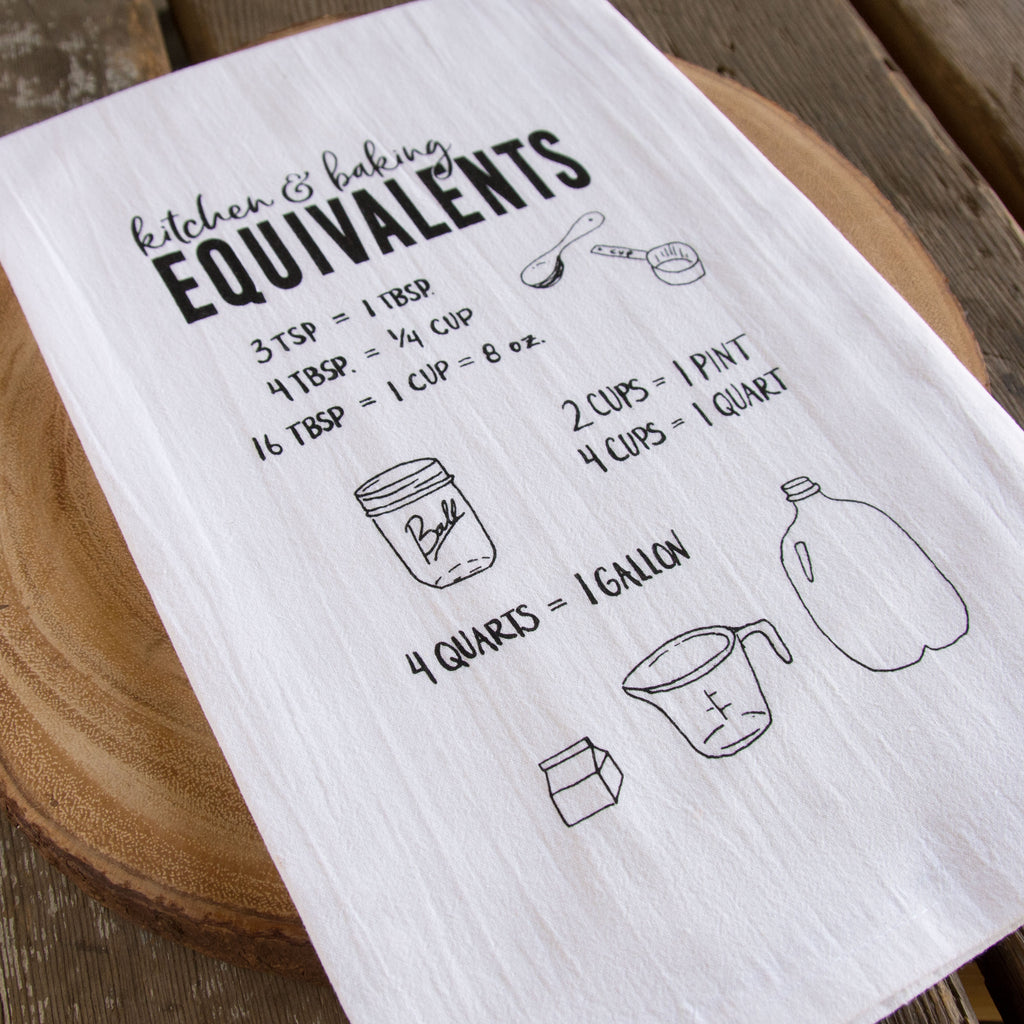 kitchen & baking
EQUIVALENTS
CUP
3 TSP = 1 TBSP.
4 TBSP. = 1/4 CUP
16 TBSP = 1 CUP = 8 oz.
2 CUPS = 1 PINT
4 CUPS = 1 QUART
Ball
4 QUARTS = 1 GALLON